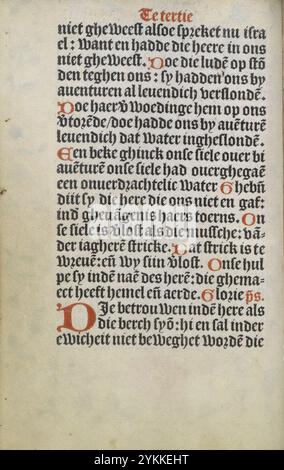 Te tertie
niet gheweest alsoe spreket nu isra
el: Want en hadde die heere in ons
niet gheweest. Doe die ludē op stō
den teghen ons: sy hadden ons by
auenturen al leuendich verslondē.
Doe haer v̄woedinge hem op ons
v̄torēde/doe hadde ons by auētūrē
leuendich dat water inghesslondē.
Een beke ghinck onse siele ouer bi
auētūrē onse siele had ouerghegaē
een onuerdrachtelic water Ghebn̄
dijt sy die here die ons niet en gaf:
ind gheuāgenis haers toerns. On
se siele is v̄lost als die mussche: vā
der iagherē stricke. Dat strick is te
wreuē: eñ wy sijn v̄lost. Onse hul
pe sy indē naē des herē: die ghema
ect heeft hemel eñ aerde. Glorie p̄s.
DIe betrouwen indē here als
die berch syō: hi en sal inder
ewicheit niet beweghet wordē die
alamy
alamy
Image ID: 2YKKEHT
www.alamy.com